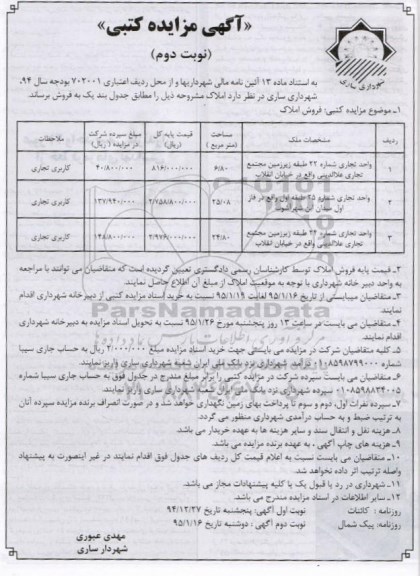 «آگهی مزایده کتبی»
(نوبت دوم)
شهرداری ساری
به استناد ماده ۱۳ آئین نامه مالی شهرداریها و از محل ردیف اعتباری ۷۰۲۰۰۱ بودجه سال ۹۴،
شهرداری ساری در نظر دارد املاک مشروحه ذیل را مطابق جدول بند یک به فروش برساند.
۱-موضوع مزایده کتبی: فروش املاک
ردیف مشخصات ملک مساحت (متر مربع) قیمت پایه کل (ریال) مبلغ سپرده شرکت در مزایده (ریال) ملاحظات
۱ واحد تجاری شماره ۲۲ طبقه زیرزمین مجتمع تجاری علاالدینی واقع در خیابان انقلاب ۶/۸۰ ۸۱۶/۰۰۰/۰۰۰ ۴۰/۸۰۰/۰۰۰ کاربری تجاری
۲ واحد تجاری شماره ۲۵ طبقه اول واقع در فاز اول میدان ۲۵/۰۸ ۲/۷۵۸/۸۰۰/۰۰۰ ۱۳۷/۹۴۰/۰۰۰ کاربری تجاری
۳ واحد تجاری شماره ۲۴ طبقه زیرزمین مجتمع تجاری علاالدینی واقع در خیابان انقلاب ۲۴/۸۰ ۲/۹۷۶/۰۰۰/۰۰۰ ۱۴۸/۸۰۰/۰۰۰ کاربری تجاری
۲- قیمت پایه فروش املاک توسط کارشناسان رسمی دادگستری تعیین گردیده است که متقاضیان می توانند با مراجعه
به واحد دبیر خانه شهرداری با توجه به موقعیت املاک از مبلغ آن اطلاع حاصل نمایند.
۳- متقاضیان میبایستی از تاریخ ۹۵/۱/۱۶ لغایت ۹۵/۱/۱۹ نسبت به خرید اسناد مزایده کتبی از دبیرخانه شهرداری اقدام
نمایند.
ParsNamadData
۴- متقاضیان می بایست در ساعت ۱۳ روز پنجشنبه مورخ ۹۵/۱/۲۶ نسبت به تحویل اسناد مزایده به دبیرخانه شهرداری
اقدام نمایند.
۵- کلیه متقاضیان شرکت در مزایده می بایستی جهت خرید اسناد مزایده مبلغ ۲/۰۰۰/۰۰۰ ریال به حساب جاری سیبا
شماره ۰۱۰۸۵۹۸۷۹۹۰۰۰ درآمد شهرداری نزد بانک ملی ایران شعبه شهرداری ساری واریز نمایند.
۶- متقاضیان می بایست سپرده شرکت در مزایده کتبی را برابر مبلغ مندرج در جدول فوق به حساب جاری سیبا شماره
۰۱۰۸۵۹۸۸۳۴۰۰۵ سپرده شهرداری نزد بانک ملی ایران شعبه شهرداری ساری واریز نمایند.
۷-سپرده نفرات اول، دوم و سوم تا پرداخت بهای زمین نگهداری خواهد شد و در صورت انصراف برنده مزایده سپرده آنان
به ترتیب ضبط و به حساب درآمدی شهرداری منظور می گردد.
۸- هزینه نقل و انتقال سند و سایر هزینه ها به عهده خریدار می باشد.
۹- هزینه های چاپ آگهی ، به عهده برنده مزایده می باشد.
۱۰- متقاضیان می بایست نسبت به اعلام قیمت کل ردیف های جدول فوق اقدام نمایند در غیر اینصورت به پیشنهاد
واصله ترتیب اثر داده نخواهد شد.
۱۱- شهرداری در رد یا قبول یک یا کلیه پیشنهادات مجاز می باشد.
۱۲-سایر اطلاعات در اسناد مزایده مندرج می باشد.
روزنامه: کائنات نوبت اول آگهی: پنجشنبه تاریخ ۹۴/۱۲/۲۷
روزنامه: پیک شمال نوبت دوم آگهی : دوشنبه تاریخ ۹۵/۱/۱۶
مهدی عبوری
شهردار ساری